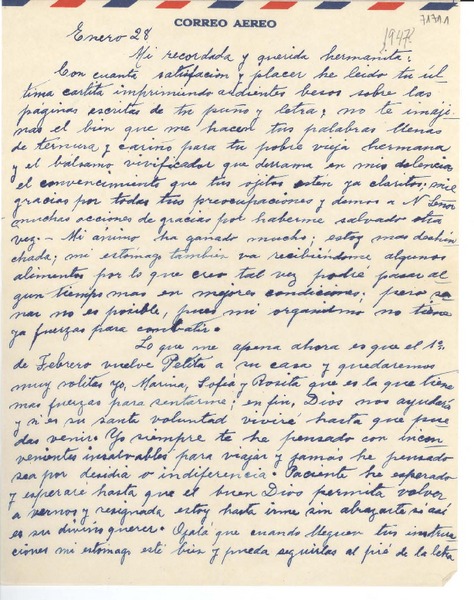 CORREO AEREO
71311
Enero 28
1947.
Mi recordada y querida hermanita:
Con cuanta satisfacion y placer he leido tu úl
tima cartita imprimiendo ardientes besos sobre las
páginas escritas de tu puño y letra; no te imaji-
nas el bien que me hacen tus palabras llenas
de ternura y cariño para tu pobre vieja hermana
y el bálsamo vivificador que derrama en mis dolencia
el convencimiento que tus ojitos esten ya claritos; mil
gracias por todas tus preocupaciones y demos a N. Senor
muchas acciones de gracias por haberme salvado otra
vez.- Mi ánimo ha ganado mucho, estoy mas deshin
chada; mi estomago tambien va recibiendome algunos
alimentos por lo que creo tal vez podré pasar al
gun tiempo mas en mejores condiciones; pero sa
nar no es posible, pues mi organismo no tiene
ya fuerzas para combatir.
Lo que me apena ahora es que el 1º
de Febrero vuelve Petita a su casa y quedaremos
muy solitas yo, Marina, Sofia y Rosita que es la que tiene
mas fuerzas para sentarme; en fin, Dios nos ayudará
y si es su santa voluntad viviré hasta que pue
das venir. Yo siempre te he pensado con incon
venientes insalvables para viajar y jamás he pensado
sea por desidia o indiferencia. Paciente he esperado
y esperaré hasta que el buen Dios permita volver
a vernos y resignada estoy hasta irme sin abrazarte si así
es su divino querer. Ojalá que cuando lleguen tus instruc
ciones mi estómago esté bien y pueda seguirlas al pié de la letra